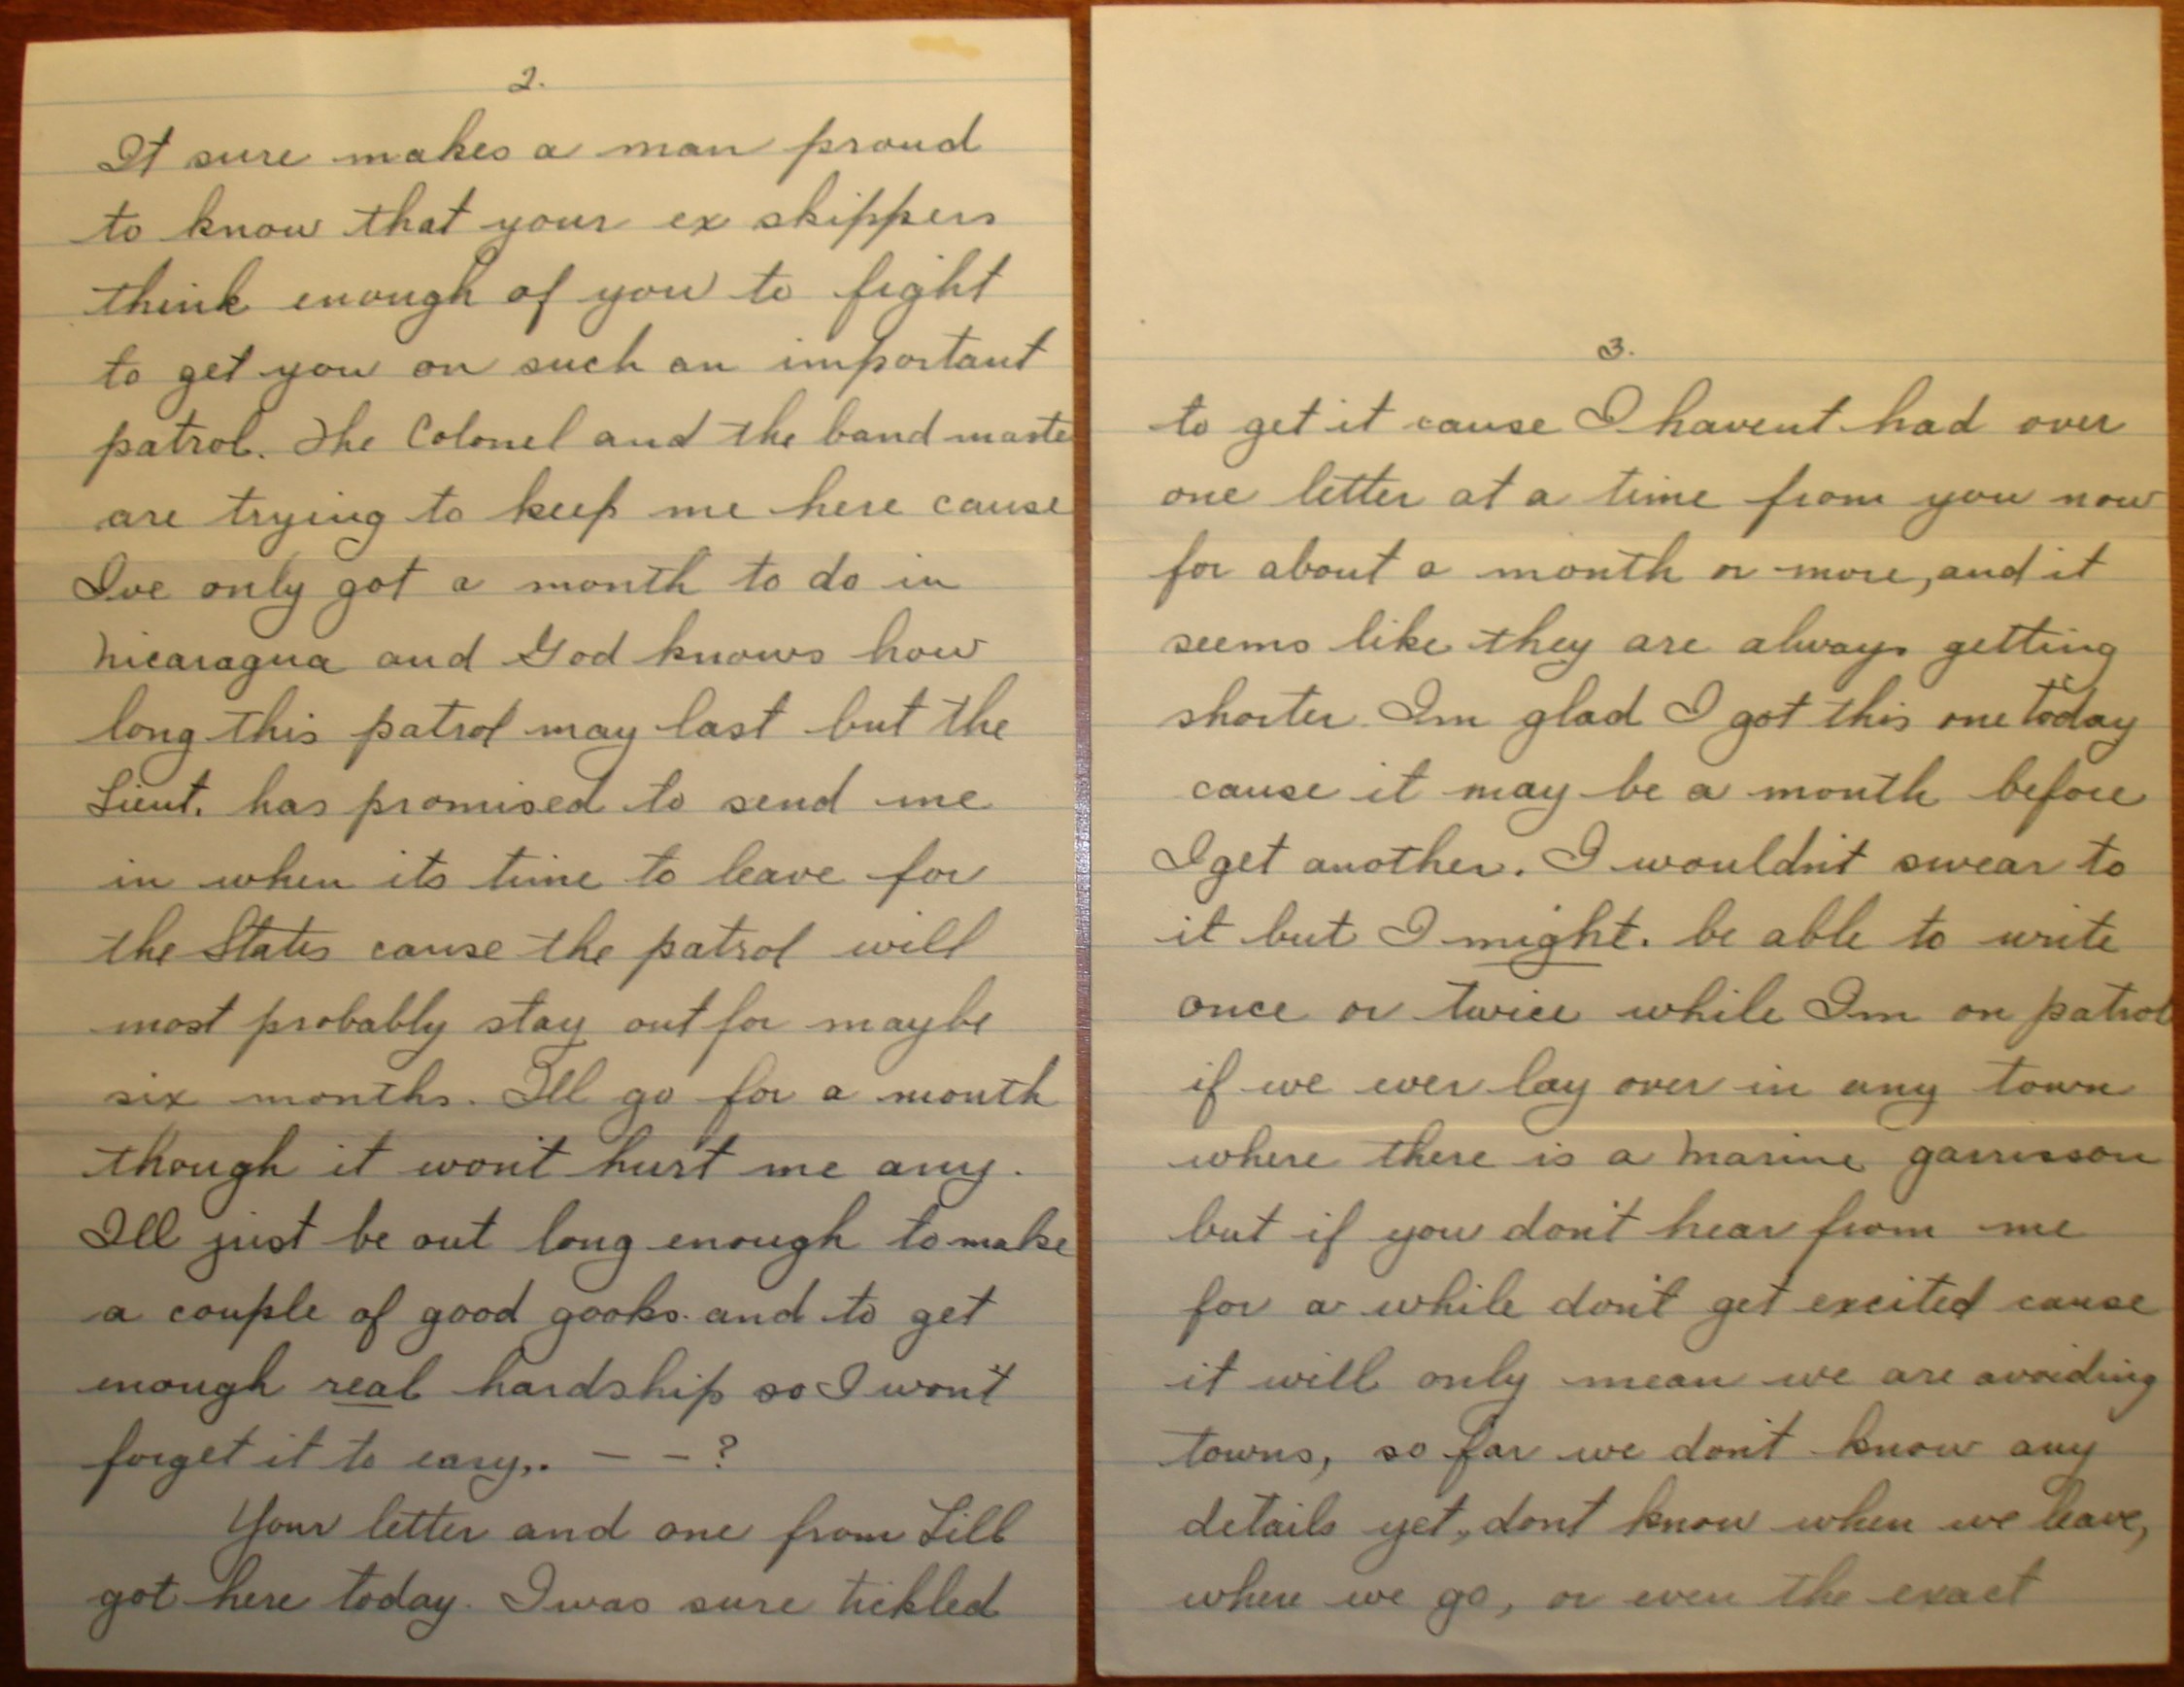 2.
It sure makes a man proud
to know that your ex skippers
think enough of you to fight
to get you on such an important
patrol. The Colonel and the band maste
are trying to keep me here cause
Ive only got a month to do in
Nicaragua and God knows how
long this patrol may last but the
Lieut. has promised to send me
in when its time to leave for
the States cause the patrol will
most probably stay out for maybe
six months. Ill go for a month
though it won't hurt me any.
Ill just be out long enough to make
a couple of good gooks. and to get
enough real hardship so I won't
forget it to easy,. — — ?
Your letter and one from Lill
got here today. I was sure tickled
3.
to get it cause I havent had over
one letter at a time from you now
for about a month or more, and it
seems like they are always getting
shorter. Im glad I got this one today
cause it may be a month before
I get another. I wouldn't swear to
it but I might. be able to write
once or twice while Im on patrol
if we ever lay over in any town
where there is a Marine garrisson
but if you don't hear from me
for a while don't get excited cause
it will only mean we are avoiding
towns, so far we don't know any
details yet, dont know when we leave,
where we go, or even the exact